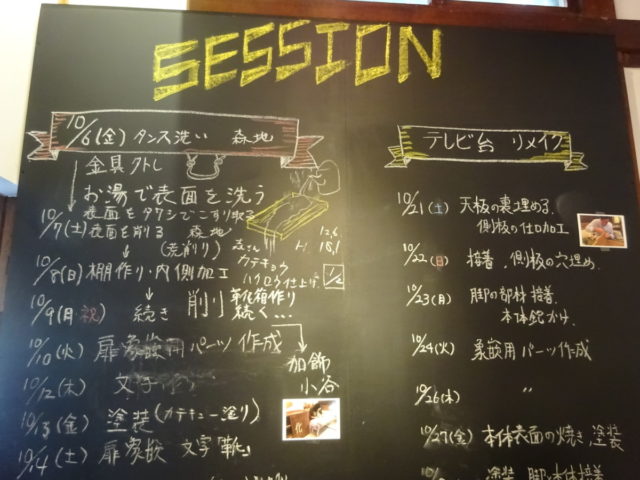 SESSION
10/6(金) タンス洗い 森地
金具外し
お湯で表面を洗う
表面をタワシでこすり取る
10/7(土) 表面を削る 森地
(荒削り)
森さん
カテキョウ
ハクロウ仕上げ 1/2
12,6
15,1
10/8(日) 棚作り・内側加工
10/9(月祝) 続き 削り 靴箱作り
続く…
10/10(火) 扉象嵌用パーツ作成
加飾
小谷
10/12(木) 文字
10/13(金) 塗装(カテキュー塗り)
10/14(土) 扉象嵌 文字 靴
テレビ台 リメイク
10/21(土) 天板の裏埋める.
側板の仕口加工
10/22(日) 接着,側板の穴埋め.
10/23(月) 脚の部材接着.
本体鉋がけ.
10/24(火) 象嵌用パーツ作成
10/26(木) 〃
10/27(金) 本体表面の焼き,塗装
塗装 脚本体接着